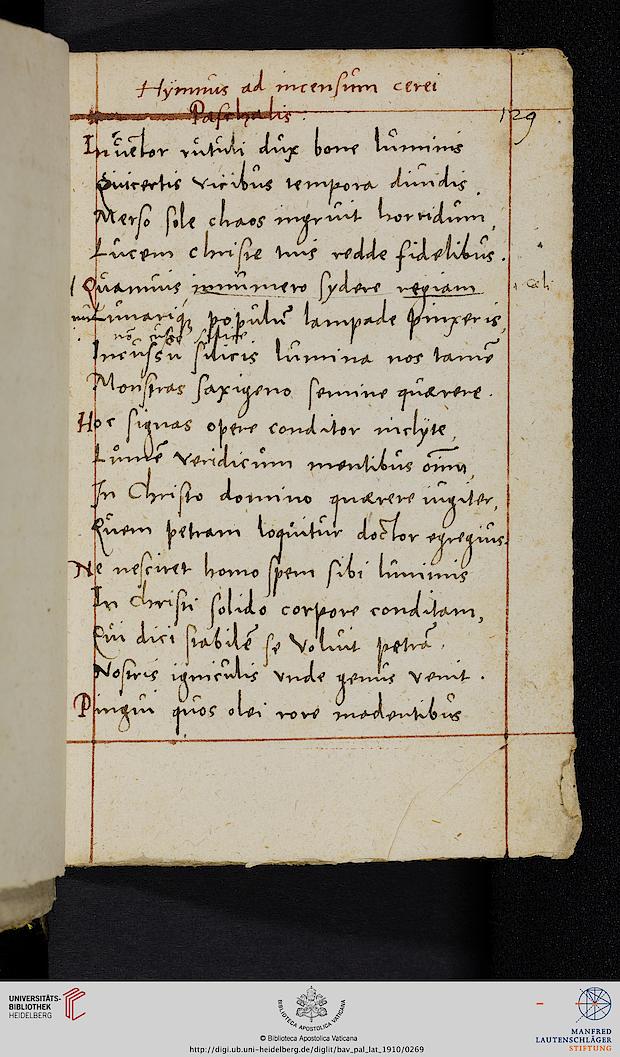 Hymnus ad incensum cerei
Paschalis.
129
Inuētor rutuli dux bone luminis
Qui certis vicibus tempora diuidis
Merso sole chaos ingruit horridum,
Lucem christe tuis redde fidelibus.
Quamuis innumero sydere regiam
cęli
Lunarique populū lampade pinxeris,
Incussu silicis lumina nos tamē
Monstras saxigeno semine quærere.
Hoc signas opere conditor inclyte,
Lumē veridicum mentibus oīm,
In Christo domino quærere iugiter,
Quem petram loquitur doctor egregius.
Ne nesciret homo spem sibi luminis
In Christi solido corpore conditam,
Qui dici stabilē se voluit petrā.
Nostris igniculis vnde genus venit.
Pingui quos olei rore madentibus
UNIVERSITÄTS-
BIBLIOTHEK
HEIDELBERG
BIBLIOTECA APOSTOLICA VATICANA
© Biblioteca Apostolica Vaticana
http://digi.ub.uni-heidelberg.de/diglit/bav_pal_lat_1910/0269
MANFRED
LAUTENSCHLÄGER
STIFTUNG